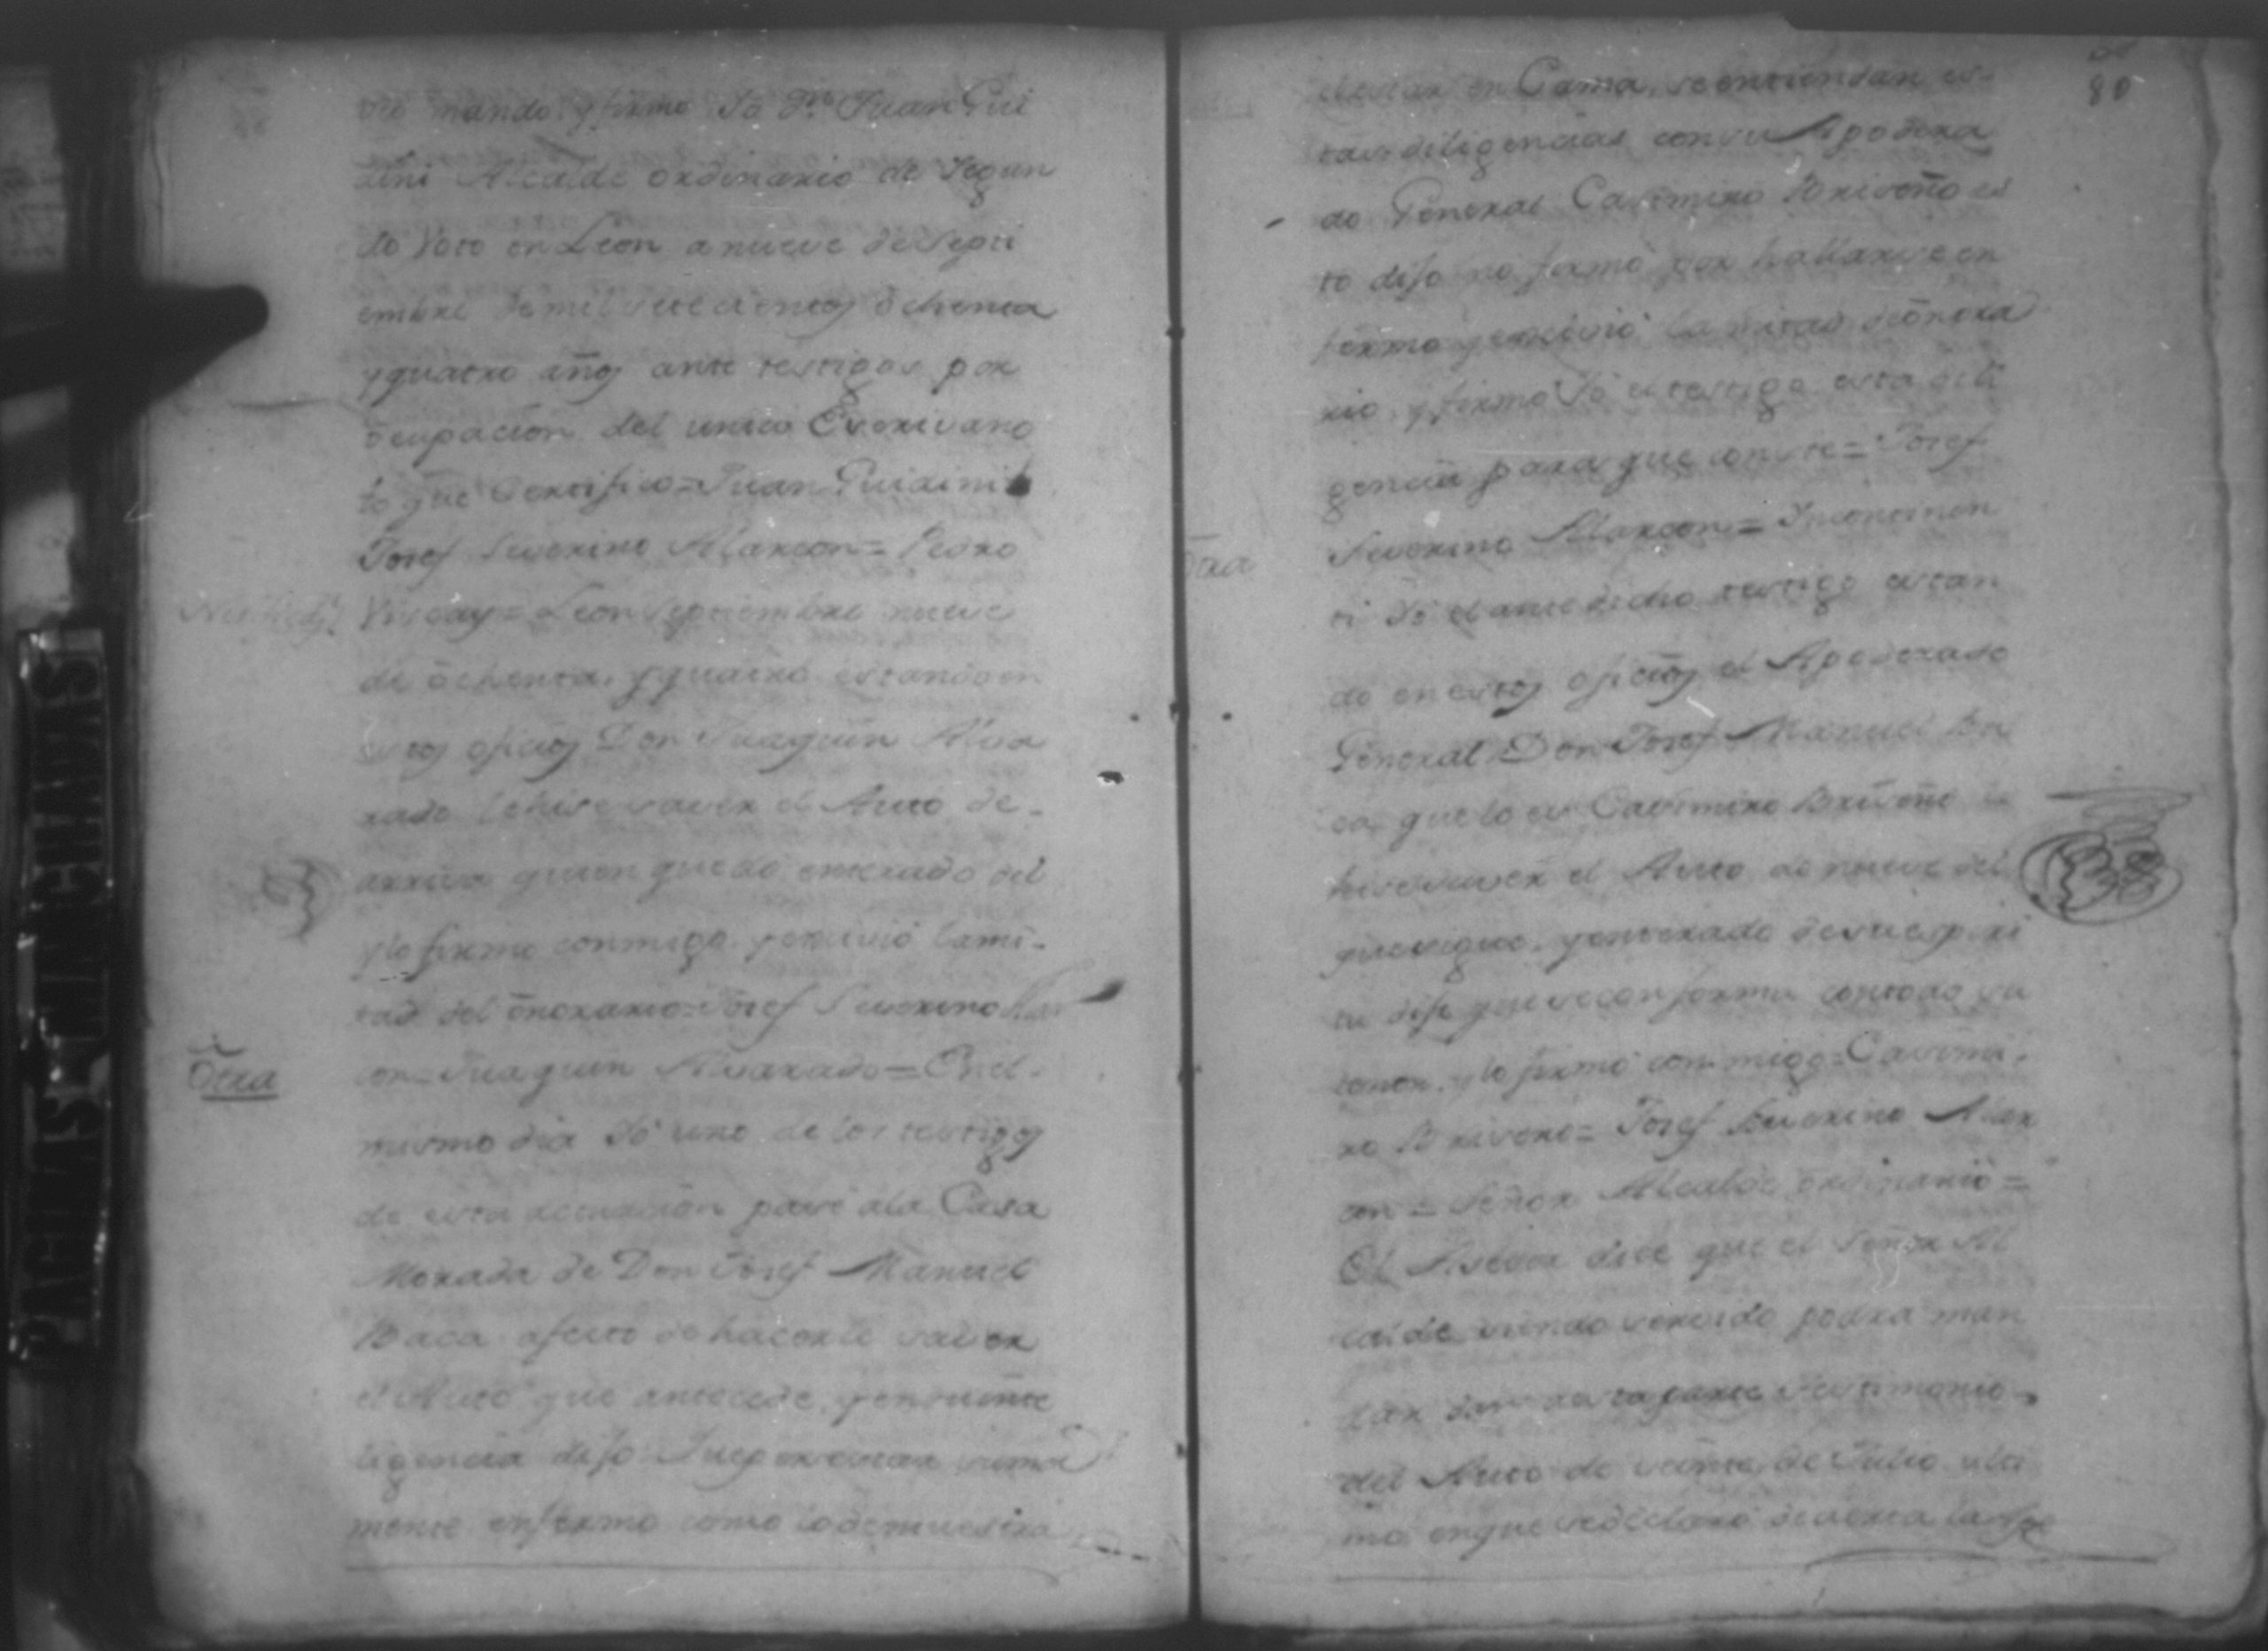 veo mando, y firmo Yo Dn. Juan Gui
dini Alcalde ordinario de Segun
do Voto en Leon a nueve de Septi
embre de mil setecientos ochenta
y quatro años ante testigos por
ocupacion del unico Escrivano
lo que Certifico = Juan Guidini =
Josef Severino Alarcon = Pedro
Viscay = Leon Septiembre nueve
de ochenta, y quatro estando en
estos oficios Don Juaquin Alva
rado le hise saver el Auto de
arriva quien quedo enterado del
y lo firmo conmigo, y exivió la mi-
tad del onorario = Josef Severino Alar
con = Juaquin Alvarado = En el
mismo dia Yo uno de los testigos
de esta actuacion pasé a la Casa
Morada de Don Josef Manuel
Baca afecto de hacerle saver
el Auto que antecede, y en su inte
ligencia dijo Que por estar suma
mente enfermo como lo demuestra
Otra
80
el estar en Cama, se entiendan es-
tas diligencias con su Apodera
do General Casimiro Briseño es
to dijo no firmó por hallarse en
fermo y exivió la mitad de onora
rio, y firmo Yo el testigo esta dili
gencia para que conste = Josef
Severino Alarcon = Incontinen
ti Yo el antedicho testigo estan
do en estos oficios el Apoderado
General Don Josef Manuel Ba
ca, que lo es Casimiro Briseño le
hise saver el Auto de nueve del
que sigue, y enterado de su espiri
tu dijo que se conforma con todo su
tenor, y lo firmó conmigo = Casimi-
ro Briseño = Josef Severino Alar
con = Señor Alcalde ordinario =
El Asesor dice que el Señor Al
calde siendo servido podra man
dar dar a esta parte testimonio
del Auto de veinte de Julio ulti
mo en que se declaró
Otra